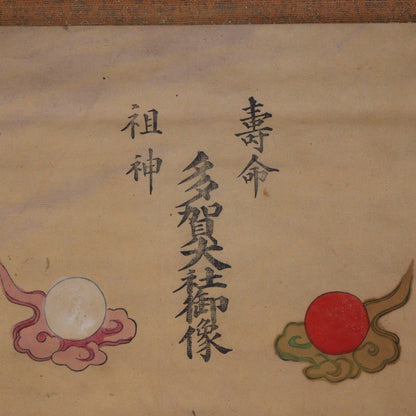 壽命
祖神
多賀大社御像